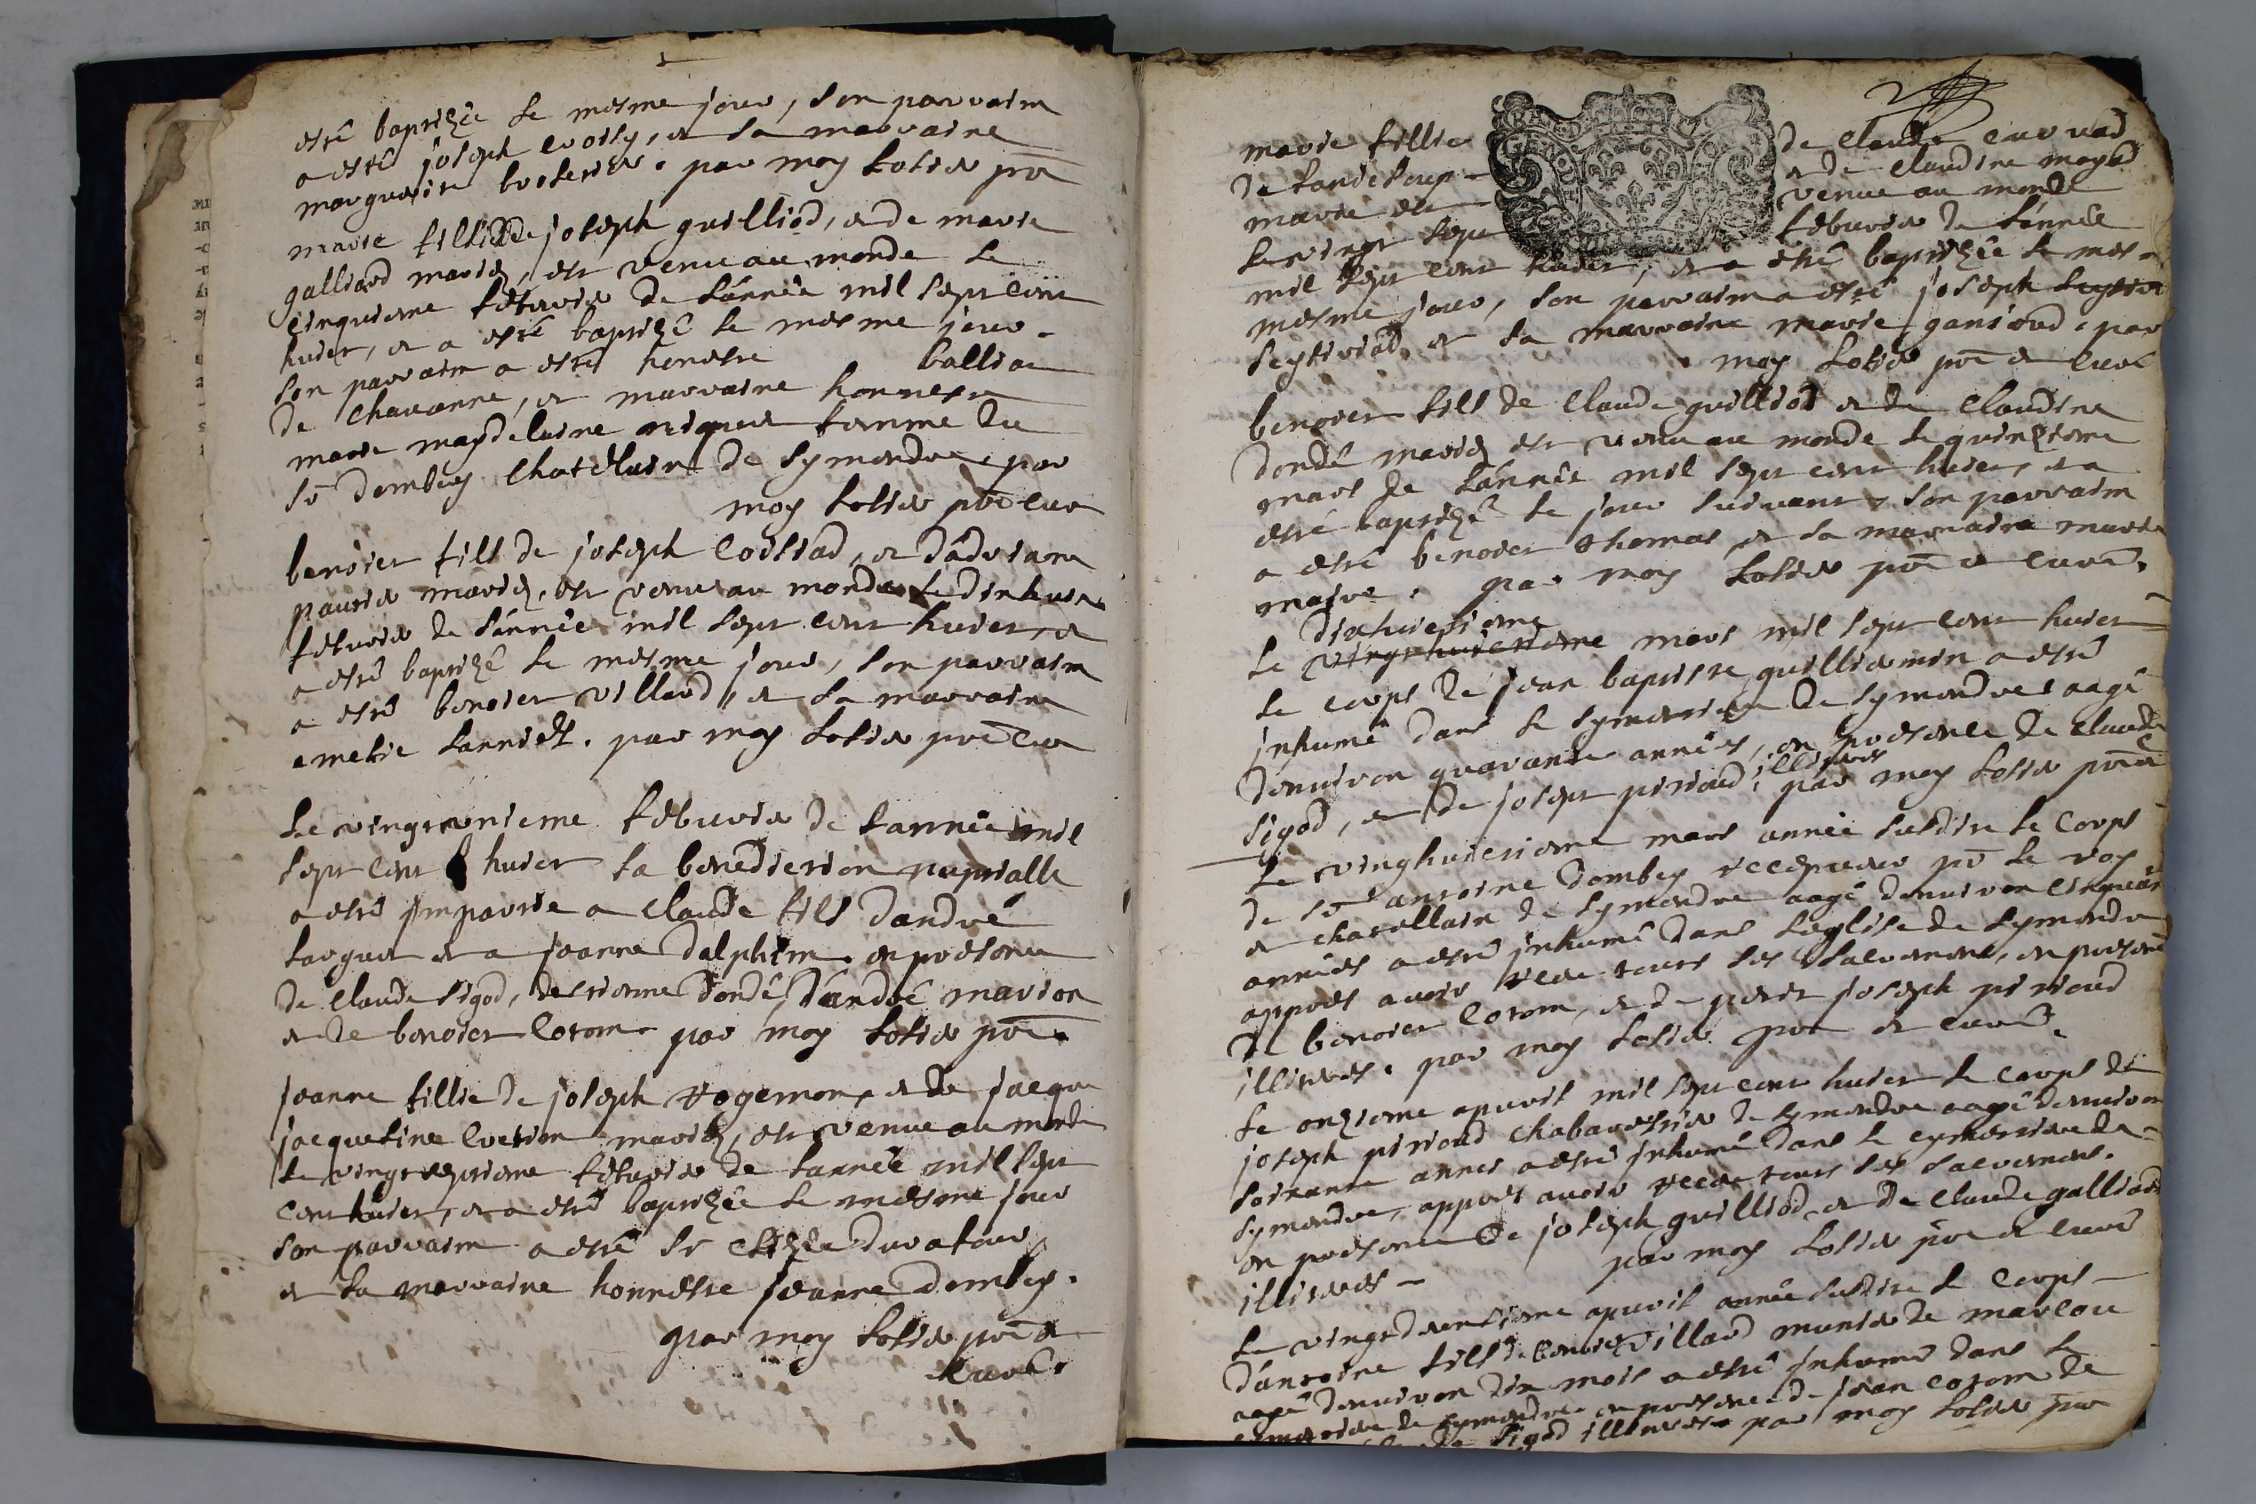 esté baptizée le mesme jour, son parrain
a esté joseph croisy, et la marraine
marguerite par moy pre
marie fillie de joseph guilliod, et de marie
galliard mariés, est venue au monde le
cinquieme febvrier de l'année mil sept cent
huict, et a esté baptizé le mesme jour.
son parrain a esté honeste balliar
de chavanne, et marraine honneste
marie magdelaine niquet femme du
sr dombey chatelain de symandre, par
moy pre cur
benoict fils de joseph , et d'adriane
mariés, est venu au monde le dixhuict
febvrier de l'année mil sept cent huict, et
a esté baptizé le mesme jour, son parrain
a esté benoict villard, et la marraine
par moy pre cur
Le vingtunieme febvrier de l'année mil
sept cent huict la benediction nuptialle
a esté impartie a claude fils d'andré
et a jeanne dalphin. en presence
de claude sigod, d'estienne dondé, d'andré marion
et de benoict cotom. par moy pre.
jeanne fillie de joseph rogemon, et de jacque
jacqueline mariés, est venue au monde
le vingtseptieme febvrier de l'année mil sept
cent huict, et a esté baptizée le mesme jour
son parrain a esté sr
et la marraine honneste jeanne dombey.
par moy pre et
curé.
marie fillie de claude
de et de claudine
mariés est venue au monde
le vingt sept febvrier de l'année
mil sept cent huict, et a esté baptizée le mes-
mesme jour, son parrain a esté joseph
et la marraine marie par
moy pre et curé
benoict fils de claude guilliod et de claudine
dondé mariés est venu au monde le quinzieme
mars de l'année mil sept cent huict, et a
esté baptizé le jour suivant, son parrain
a esté benoict thomas, et la marraine marie
par moy pre et curé.
dixhuictieme
Le vingthuictieme mars mil sept cent huict
le corps de jean baptiste guilliermin a esté
inhumé dans le symentiere de symandre aagé
d'environ quarante années, en presence de claude
illitrés
sigod, et de joseph pirioud, par moy pre
Le vinghuictieme mars année susdite le corps
de sr antoine dombey recepveur pr le roy
et chatellain de symandre aagé d'environ cinquante
années a esté inhumé dans l'eglise de symandre
apprés avoir receu tous ses sacrements, en presence
de benoict cotom, et de joseph pirioud
illitrés. par moy pre et curé.
Le onzieme apvril mil sept cent huict le corps de
joseph pirioud de symandre aagé d'environ
soixante années a esté inhumé dans le cymentiere de
symandre, apprés avoir receu tous ses sacrements.
en presence de joseph guilliod, et de claude galliard
illitrés - par moy pre et curé
Le apvril année susdite le corps
d'antoine fils de benoict villard de
aagé d'environ dix mois a esté inhumé dans le
cymentiere de symandre en presence de jean cotom de
sigod illitrés par moy pre